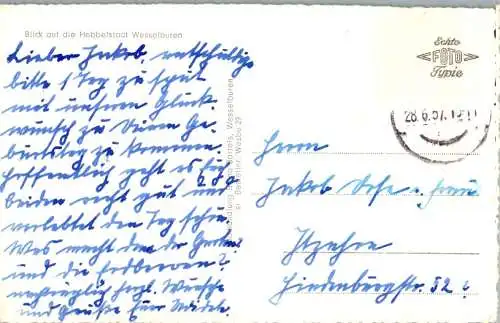 Blick auf die Hebbelstadt Wesselburen
Lieber Jakob, entschuldige
bitte 1 Tag zu spät
mit unsren Glück-
wunsch zu Deinen Ge-
burtstag zu kommen.
Hoffentlich geht es Euch
beiden recht gut und
verlebtet den Tag schön.
Was macht denn der Garten
und die Erdbeeren?
herzl. Wünsche
und Grüße Eure
Echte
FOTO
Typie
28.6.57.
Herrn
Jakob u. Frau
Itzehoe
Hindenburgstr. 52
Wesselburen